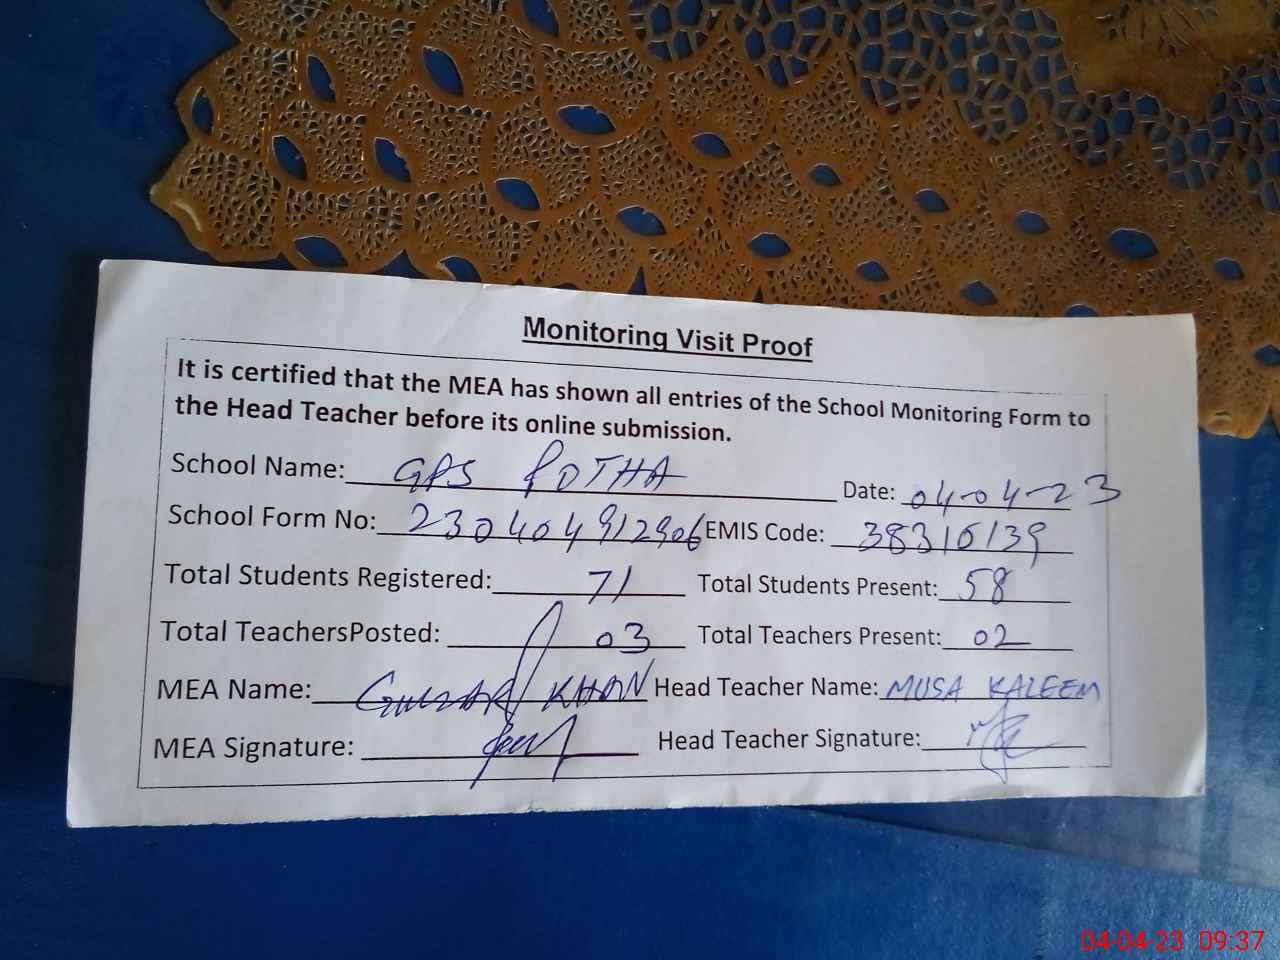 Monitoring Visit Proof
It is certified that the MEA has shown all entries of the School Monitoring Form to
the Head Teacher before its online submission.
School Name: GPS POTHA Date: 04-04-23
School Form No: 230404912906 EMIS Code: 38310139
Total Students Registered: 71 Total Students Present: 58
Total TeachersPosted: 03 Total Teachers Present: 02
MEA Name: GULZAR KHAN Head Teacher Name: MUSA KALEEM
MEA Signature: Head Teacher Signature:
04-04-23 09:37